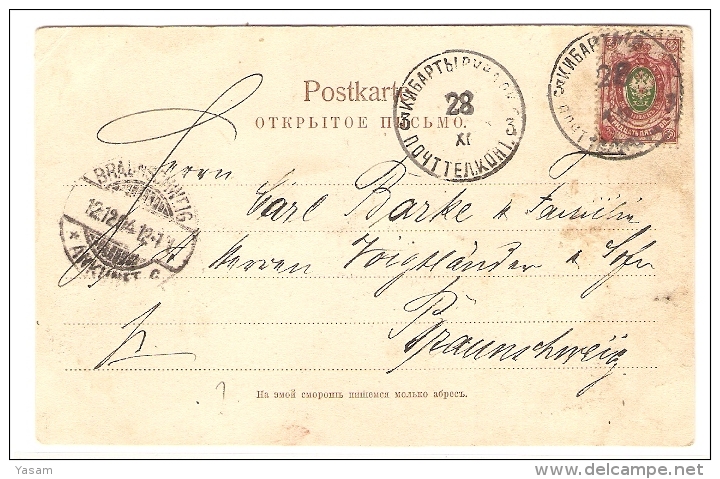 Postkarte
ОТКРЫТОЕ ПИСЬМО.
КИБАРТЫ
28
XI
3 3
ПОЧТ ТЕЛ КОНТ.
КИБАРТЫ
28
BRAUNSCHWEIG
12.12.04.12-1
* ANKUNFT
Herrn
Carl Barke & Familie
Herren Voigtländer & Sohn
Braunschweig
На этой сторонѣ пишется только адресъ.
Yasam
delcampe.net